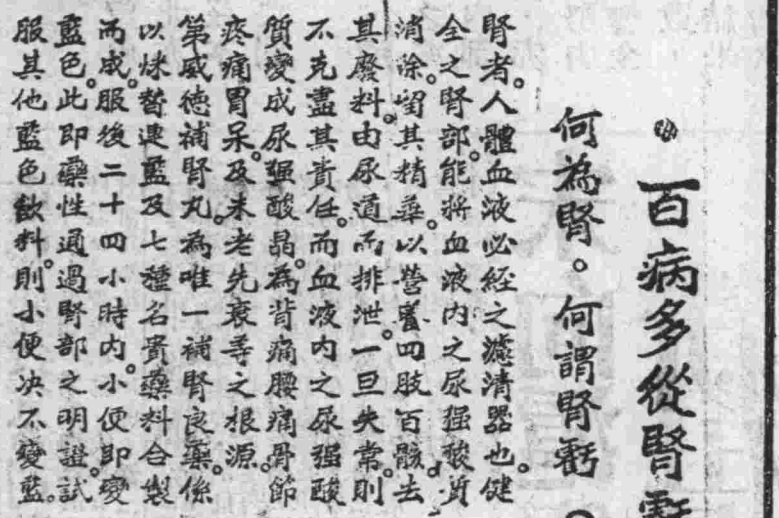 百病多從腎虧
何為腎。何謂腎虧。
腎者。人體血液必經之濾清器也。健
全之腎部。能將血液內之尿强酸質
消除。留其精華。以營養四肢百骸。去
其廢料。由尿道而排泄。一旦失常。則
不克盡其責任。而血液內之尿强酸
質變成尿强酸晶。為背痛腰痛骨節
疼痛胃呆。及未老先衰等之根源。
第威德補腎丸。為唯一補腎良藥。係
以烊替連藍及七種名貴藥料合製
而成。服後二十四小時內。小便即變
藍色。此即藥性通過腎部之明證。試
服其他藍色飲料。則小便决不變藍。